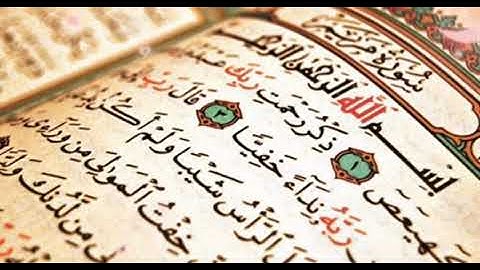 سُورَةُ مَرْيَمَ
بِسْمِ اللَّهِ الرَّحْمَٰنِ الرَّحِيمِ
كٓهيعٓصٓ ١ ذِكْرُ رَحْمَتِ رَبِّكَ
رَبَّهُ نِدَآءً خَفِيًّا ٣ قَالَ رَبِّ
ٱلرَّأْسُ شَيْبًا وَلَمْ أَكُن
خِفْتُ ٱلْمَوَٰلِىَ مِن وَرَآءِى
مِن لَّدُنكَ